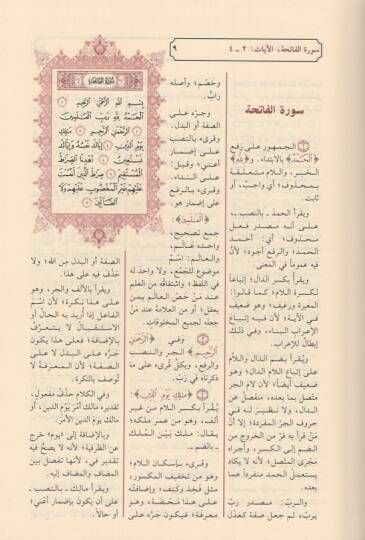 سورة الفاتحة، الآيات: ٢ ـ ٤
٩
سُورَةُ الفَاتِحَةِ
بِسْمِ اللَّهِ الرَّحْمَٰنِ الرَّحِيمِ
الْحَمْدُ لِلَّهِ رَبِّ الْعَالَمِينَ
الرَّحْمَٰنِ الرَّحِيمِ مَالِكِ
يَوْمِ الدِّينِ إِيَّاكَ نَعْبُدُ وَإِيَّاكَ
نَسْتَعِينُ اهْدِنَا الصِّرَاطَ
الْمُسْتَقِيمَ صِرَاطَ الَّذِينَ أَنْعَمْتَ
عَلَيْهِمْ غَيْرِ الْمَغْضُوبِ عَلَيْهِمْ وَلَا
الضَّالِّينَ
سورة الفاتحة
الجمهور على رفع
﴿الْحَمْدُ﴾ بالابتداء. و﴿لِلَّهِ﴾
الخبر، واللام متعلقة
بمحذوف؛ أي واجبٌ، أو
ثابت.
ويقرأ الحمدَ ـ بالنصب ـ،
على أنه مصدر فعل
محذوف؛ أي: أحمد
الحمدَ؛ والرفع أجود؛ لأن
فيه عموماً في المعنى.
ويقرأ بكسر الدال؛ إتباعاً
لكسرة اللام؛ كما قالوا:
المِغيرة ورِغيف؛ وهو ضعيف
في الآية؛ لأن فيه إتباعَ
الإعراب البناء، وفي ذلك
إبطالٌ للإعراب.
ويُقرأ بضم الدال واللام
على إتباع اللام الدالَ؛ وهو
ضعيف أيضاً؛ لأن لام الجر
متصل بما بعده، منفصل عن
الدال، ولا نظير له في
حروف الجرّ المفردة؛ إلا أنّ
مَنْ قرأ به فرّ من الخروج من
الضم إلى الكسر، وأجراه
مجرى المتصل؛ لأنه لا يكاد
يستعمل الحمد منفرداً عما
بعده.
والربّ: مصدر ربّ
يربّ، ثم جعل صفة كعَدْل
وخَصْم؛ وأصله
رابٌّ.
وجرّه على
الصفة أو البدل.
وقرىء بالنصب
على إضمار
أعني؛ وقيل:
على النداء.
وقرىء بالرفع
على إضمار هو.
﴿الْعَالَمِينَ﴾:
جمع تصحيح،
واحده عالَم،
والعالم: اسمٌ
موضوع للجَمْع، ولا واحدَ له
في اللفظ؛ واشتقاقُه من العلم
عند مَنْ خصّ العالم بمن
يعقل؛ أو من العلامة عند مَنْ
جعله لجميع المخلوقات.
وفي ﴿الرَّحْمَٰنِ
الرَّحِيمِ﴾ الجر والنصب
والرفع، وبكلّ قُرىء على ما
ذكرناه في ربّ.
﴿مَالِكِ يَوْمِ الدِّينِ﴾:
يُقرأ بكسر اللام من غير
ألف، وهو من عمر ملكه؛
يقال: ملك بيّن المُلك
ـ بالضم ـ.
وقرىء بإسكان اللام؛
وهو من تخفيف المكسور،
مثل فَخِذ وكتِف؛ وإضافتُه
على هذا محضة، وهو
معرفة؛ فيكون جَرُّه على
الصفة أو البدل من الله؛ ولا
حَذْف فيه على هذا.
ويقرأ بالألف والجر، وهو
على هذا نكرة؛ لأن اسْمَ
الفاعل إذا أُريد به الحال أو
الاستقبال لا يتعرّفُ
بالإضافة؛ فعلى هذا يكون
جَرُّه على البدل لا على
الصفة؛ لأن المعرفة لا
تُوصف بالنكرة.
وفي الكلام حذْفُ مفعول،
تقديره مالك أمْرَ يَوْمِ الدين، أو
مالك يومِ الدين الأمرَ.
وبالإضافة إلى «يوم» خرج
عن الظرفية؛ لأنه لا يصحُّ فيه
تقدير في، لأنها تفصل بين
المضاف والمضاف إليه.
ويقرأ مالكَ ـ بالنصب ـ
على أن يكون بإضمار أعني؛
أو حالاً.